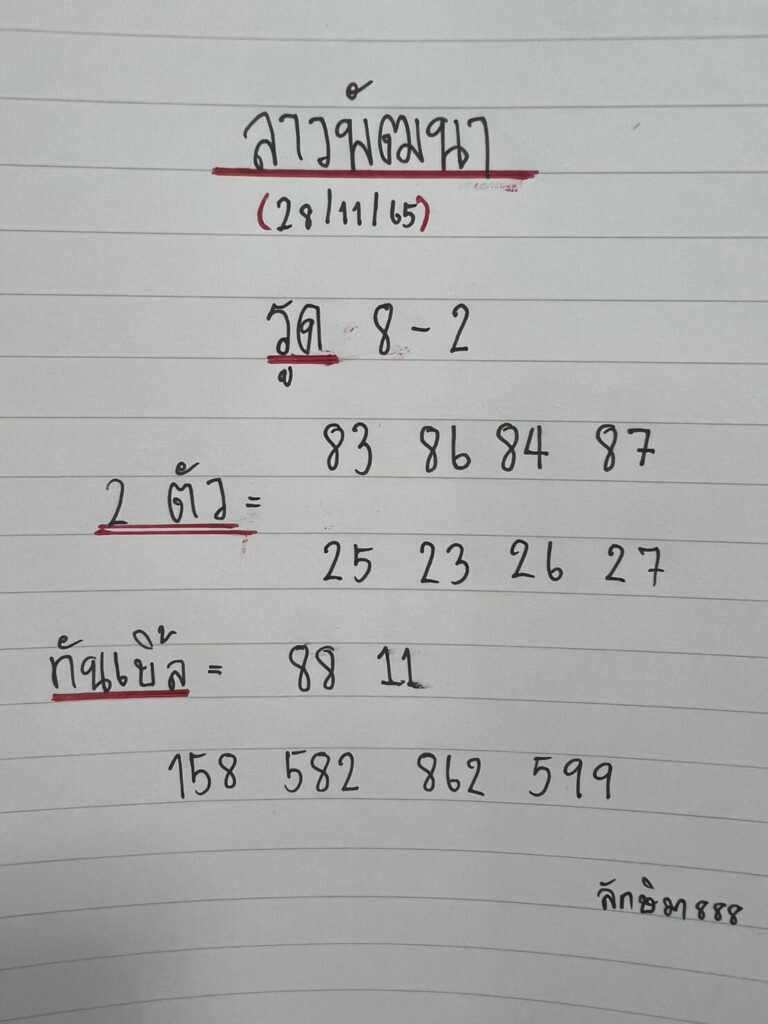 ลาวพัฒนา
(28/11/65)
รูด 8-2
83 86 84 87
2 ตัว =
25 23 26 27
ทันเบิ้ล = 88 11
158 582 862 599
ลักษิมา888